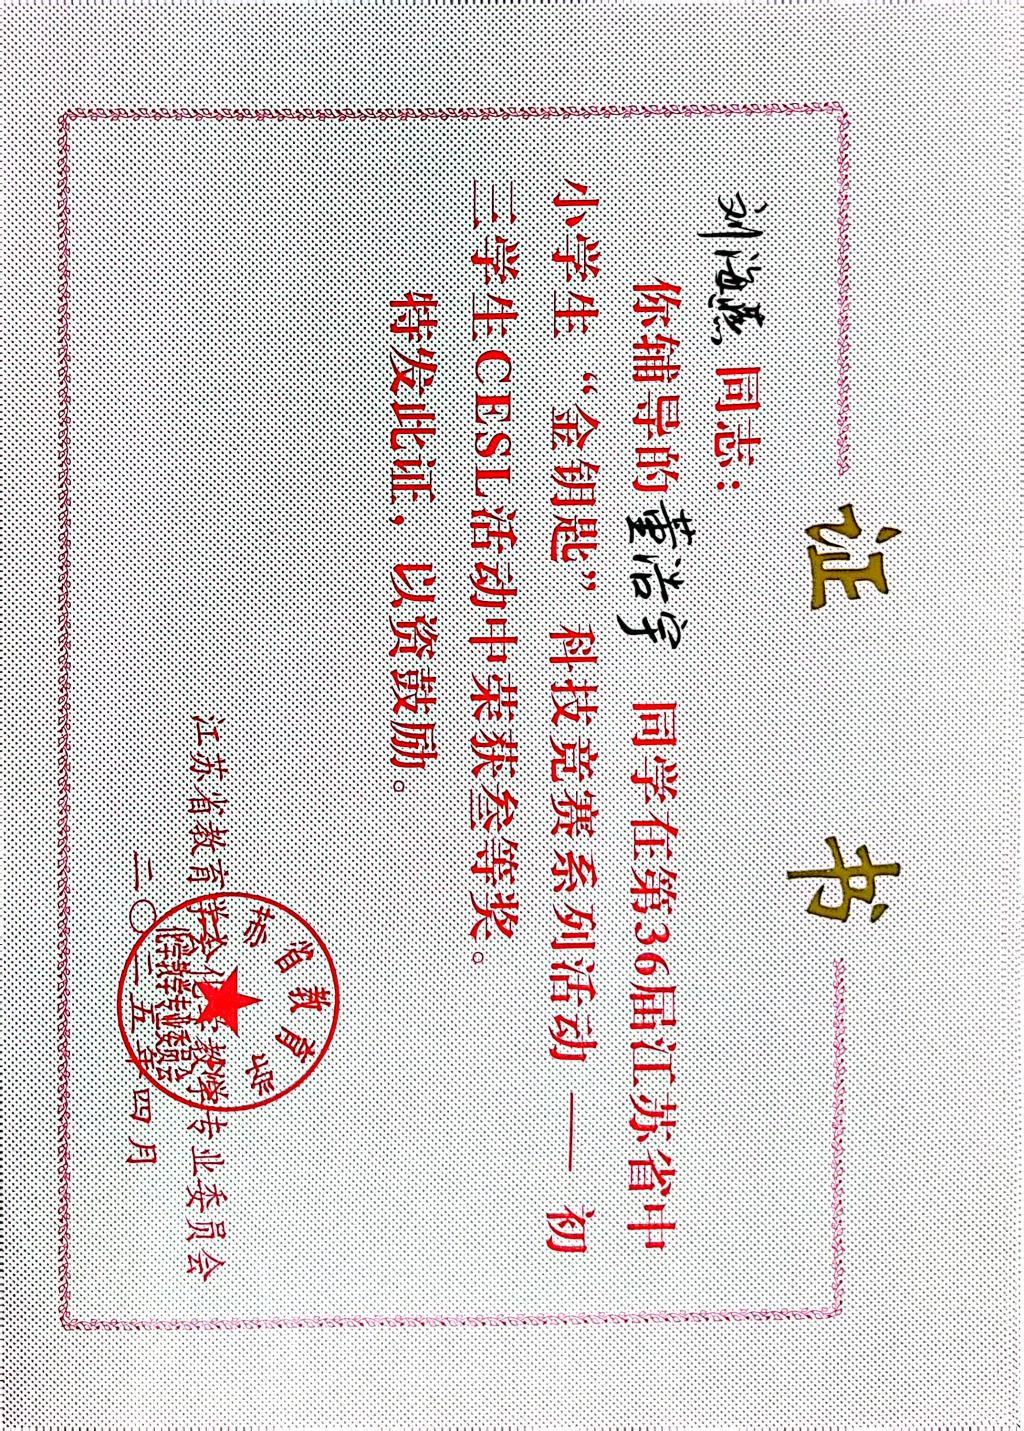 证 书
刘海燕 同志：
你辅导的董浩宇 同学在第36届江苏省中
小学生“金钥匙”科技竞赛系列活动——初
三学生CESL活动中荣获叁等奖。
特发此证，以资鼓励。
江苏省教育学会化学教学专业委员会
二〇二五年四月
苏省教育学
化学教学专业委员会